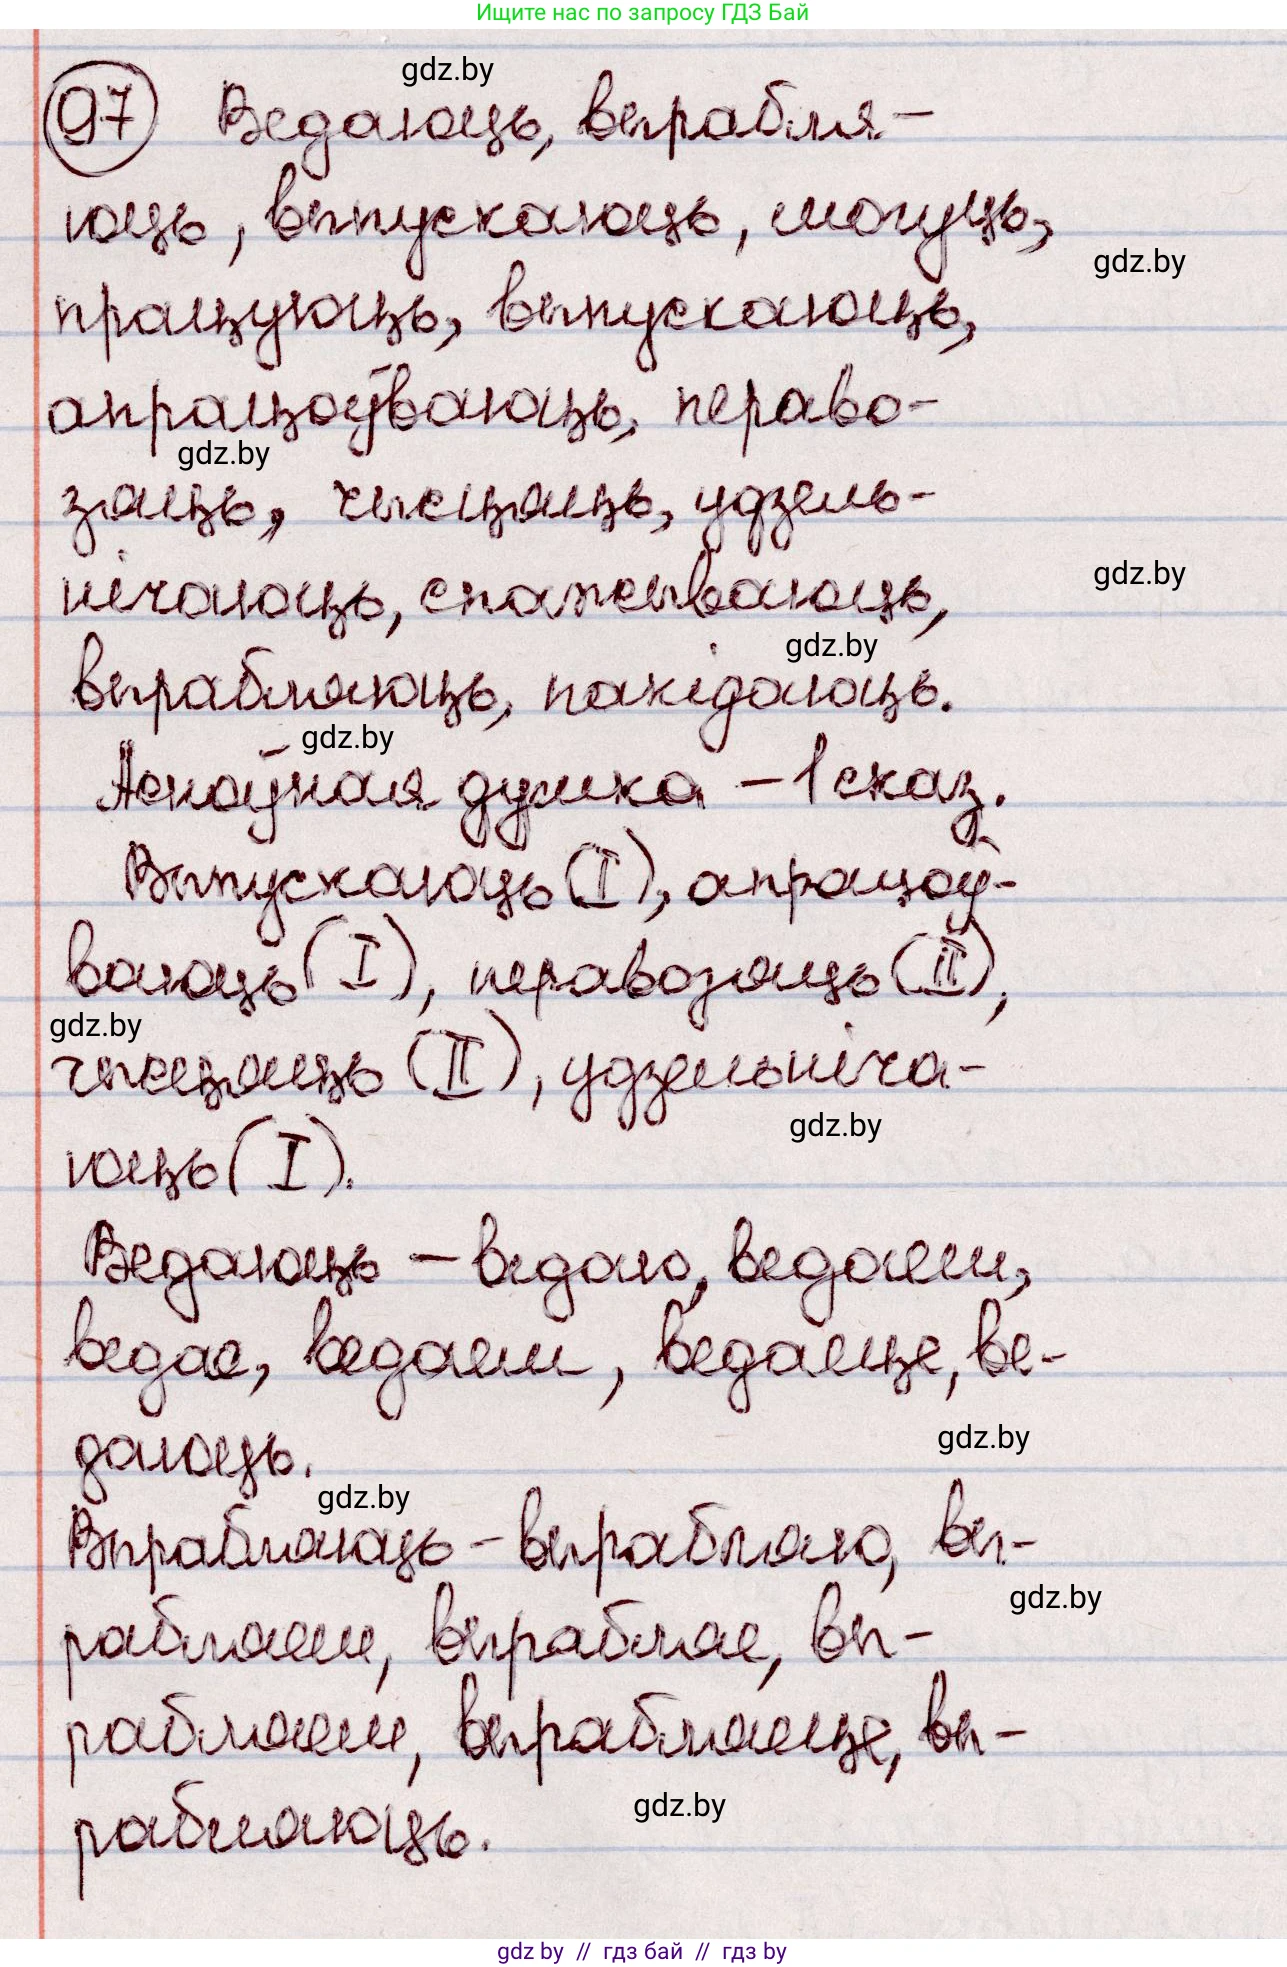 Ищите нас по запросу ГДЗ Бай
gdz.by
97 Ведаюць, вырабля-
юць, выпускаюць, могуць,
gdz.by
працуюць, выпускаюць,
апрацоўваюць, перавo-
gdz.by
зяць, чысцяць, удзель-
нічаюць, спажываюць,
gdz.by
gdz.by
вырабляюць, пакідаюць.
gdz.by
Асноўная думка – 1 сказ.
Выпускаюць (I), апрацоў-
ваюць (I), перавозяць (II),
gdz.by
чысцяць (II), удзельніча-
gdz.by
юць (I).
Ведаюць – ведаю, ведаеш,
ведае, ведаем, ведаеце, ве-
gdz.by
даюць.
gdz.by
Вырабляюць – вырабляю, вы-
gdz.by
рабляеш, вырабляе, вы-
рабляем, вырабляеце, вы-
gdz.by
рабляюць.
gdz by // гдз бай // гдз by